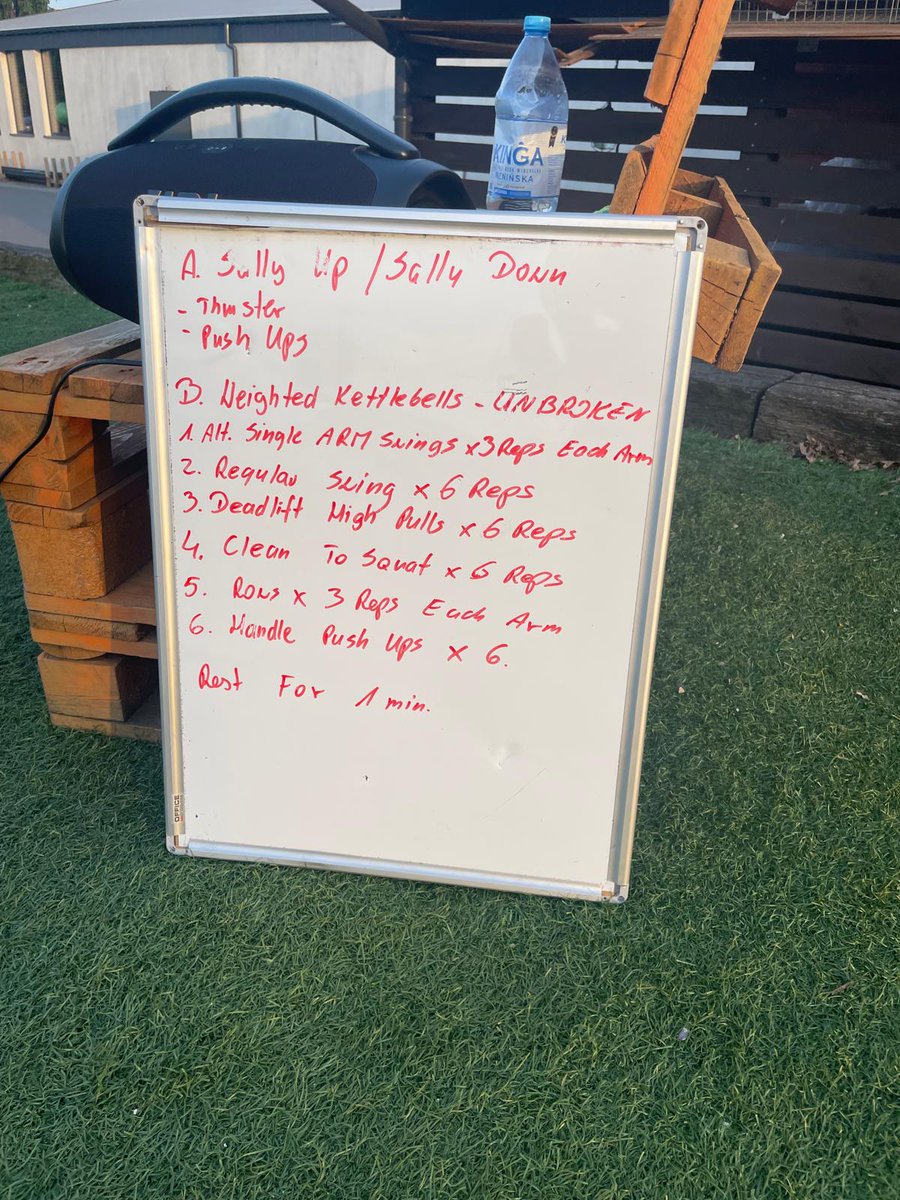 JBL
KINGA
PIENIŃSKA
A. Sally Up / Sally Down
- Thruster
- Push Ups
B. Weighted Kettlebells - UNBROKEN
1. Alt. Single ARM Swings x 3 Reps Each Arm
2. Regular Swing x 6 Reps
3. Deadlift High Pulls x 6 Reps
4. Clean To Squat x 6 Reps
5. Rows x 3 Reps Each Arm
6. Handle Push Ups x 6.
Rest For 1 min.
OFFICE